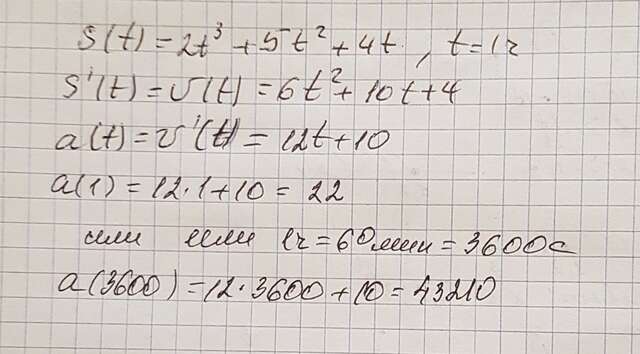 S(t) = 2t³ + 5t² + 4t , t = 1ч
S'(t) = υ(t) = 6t² + 10t + 4
a(t) = υ'(t) = 12t + 10
a(1) = 12·1 + 10 = 22
или если 1ч = 60мин = 3600с
a(3600) = 12·3600 + 10 = 43210